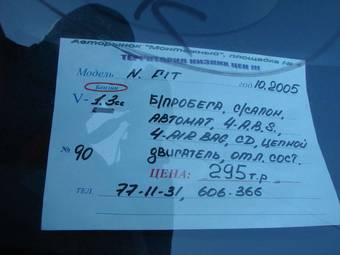 Авторынок "Монтажный", площадка №
ТЕРРИТОРИЯ НИЗКИХ ЦЕН !!!
Модель N. FIT год 10.2005
Бензин
V- 1.3 сс Б/ПРОБЕГА, С/САЛОН,
АВТОМАТ, 4-A.B.S.,
4-AIR BAG, CD, ЦЕПНОЙ
№ 90 ДВИГАТЕЛЬ, ОТЛ. СОСТ.
ЦЕНА: 295 т.р
ТЕЛ. 77-11-31, 606-366